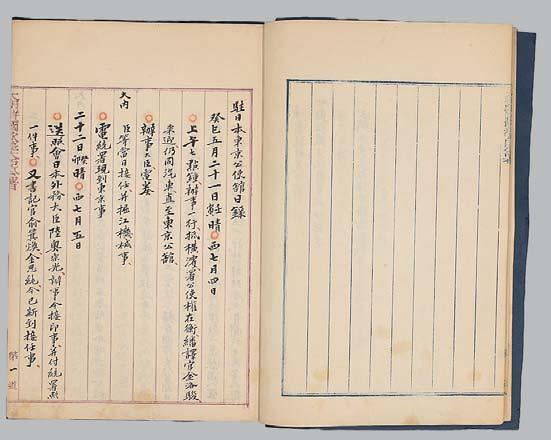 駐日本東京公使館日錄
癸巳五月二十一日 晴 西七月四日
上午七點鍾辦事一行抵橫濱署公使權在衡繙譯官金洛駿
來迎仍同汽車直至東京公館
辦事大臣電奏
大內
臣等當日接任并 江機械事
電統署現到東京事
二十二日 晴 西七月五日
送照會日本外務大臣陸奧宗光辦事今接印事并付統署照
一件事 又書記官俞箕煥金思純今已新到接任事
第一道